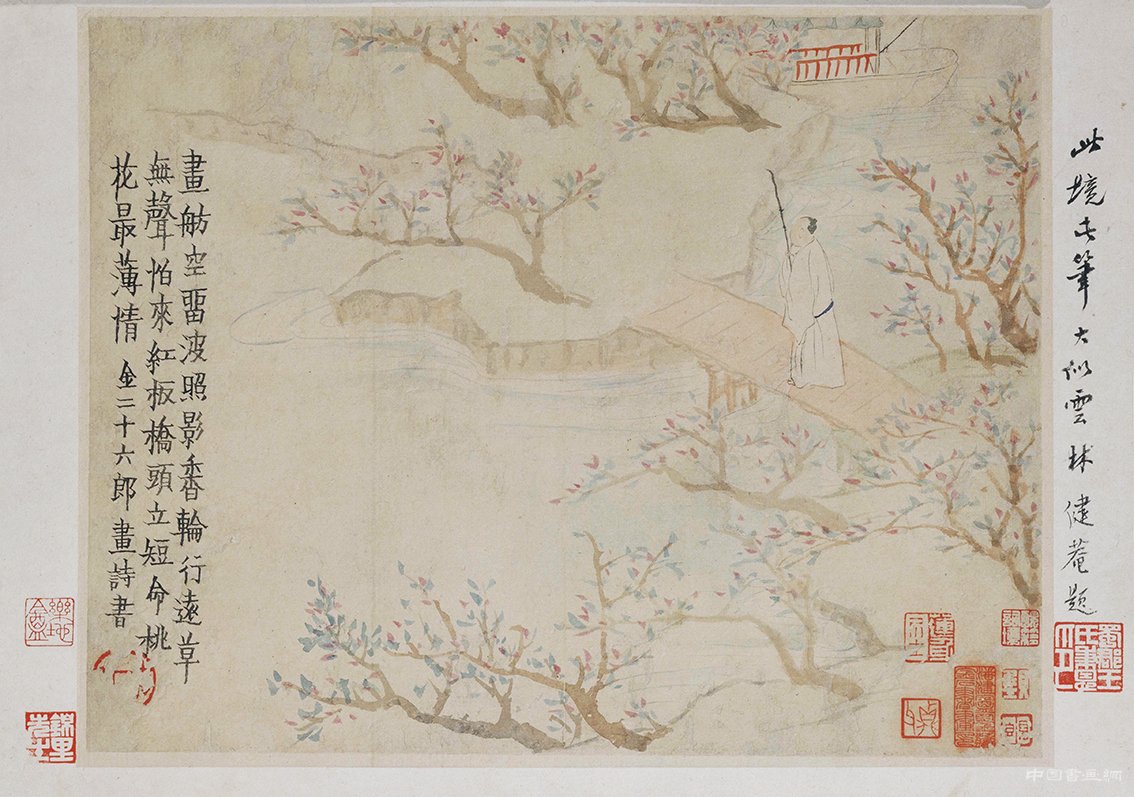 此境此筆大似雲林健菴題
畫舫空留波照影香輪行遠草
無聲怕來紅板橋頭立短命桃
花最薄情金二十六郎畫詩書
中国書画網